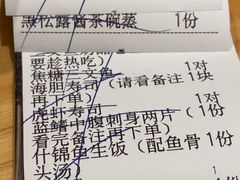 黑松露酱茶碗蒸 1份
要趁热吃） 1对
焦糖三文鱼 （请看备注 1块
再下单）
海胆寿司 1对
虎虾寿司 1对
蓝鳍中腹刺身两片（ 1份
看完备注再下单）
什锦鱼生饭（配鱼骨 1份
头汤）